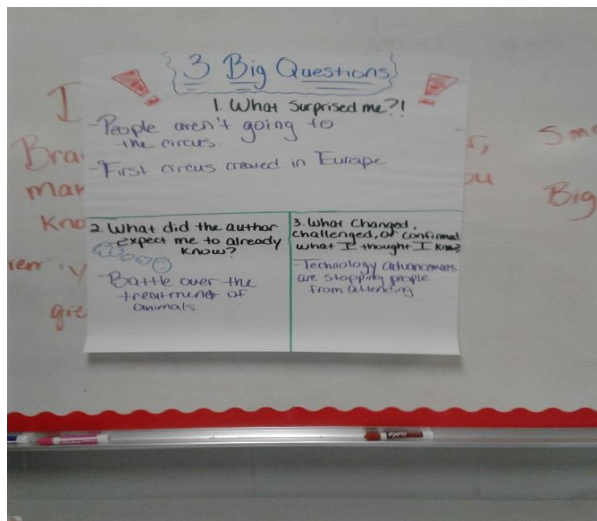 3 Big Questions
1. What surprised me?!
- People aren't going to
the circus.
- First circus created in Europe
2. What did the author
expect me to already
know?
- Battle over the
treatment of
animals
3. What changed,
challenged, or confirmed
what I thought I knew?
- Technology advancements
are stopping people
from attending
I
Big
EXPO